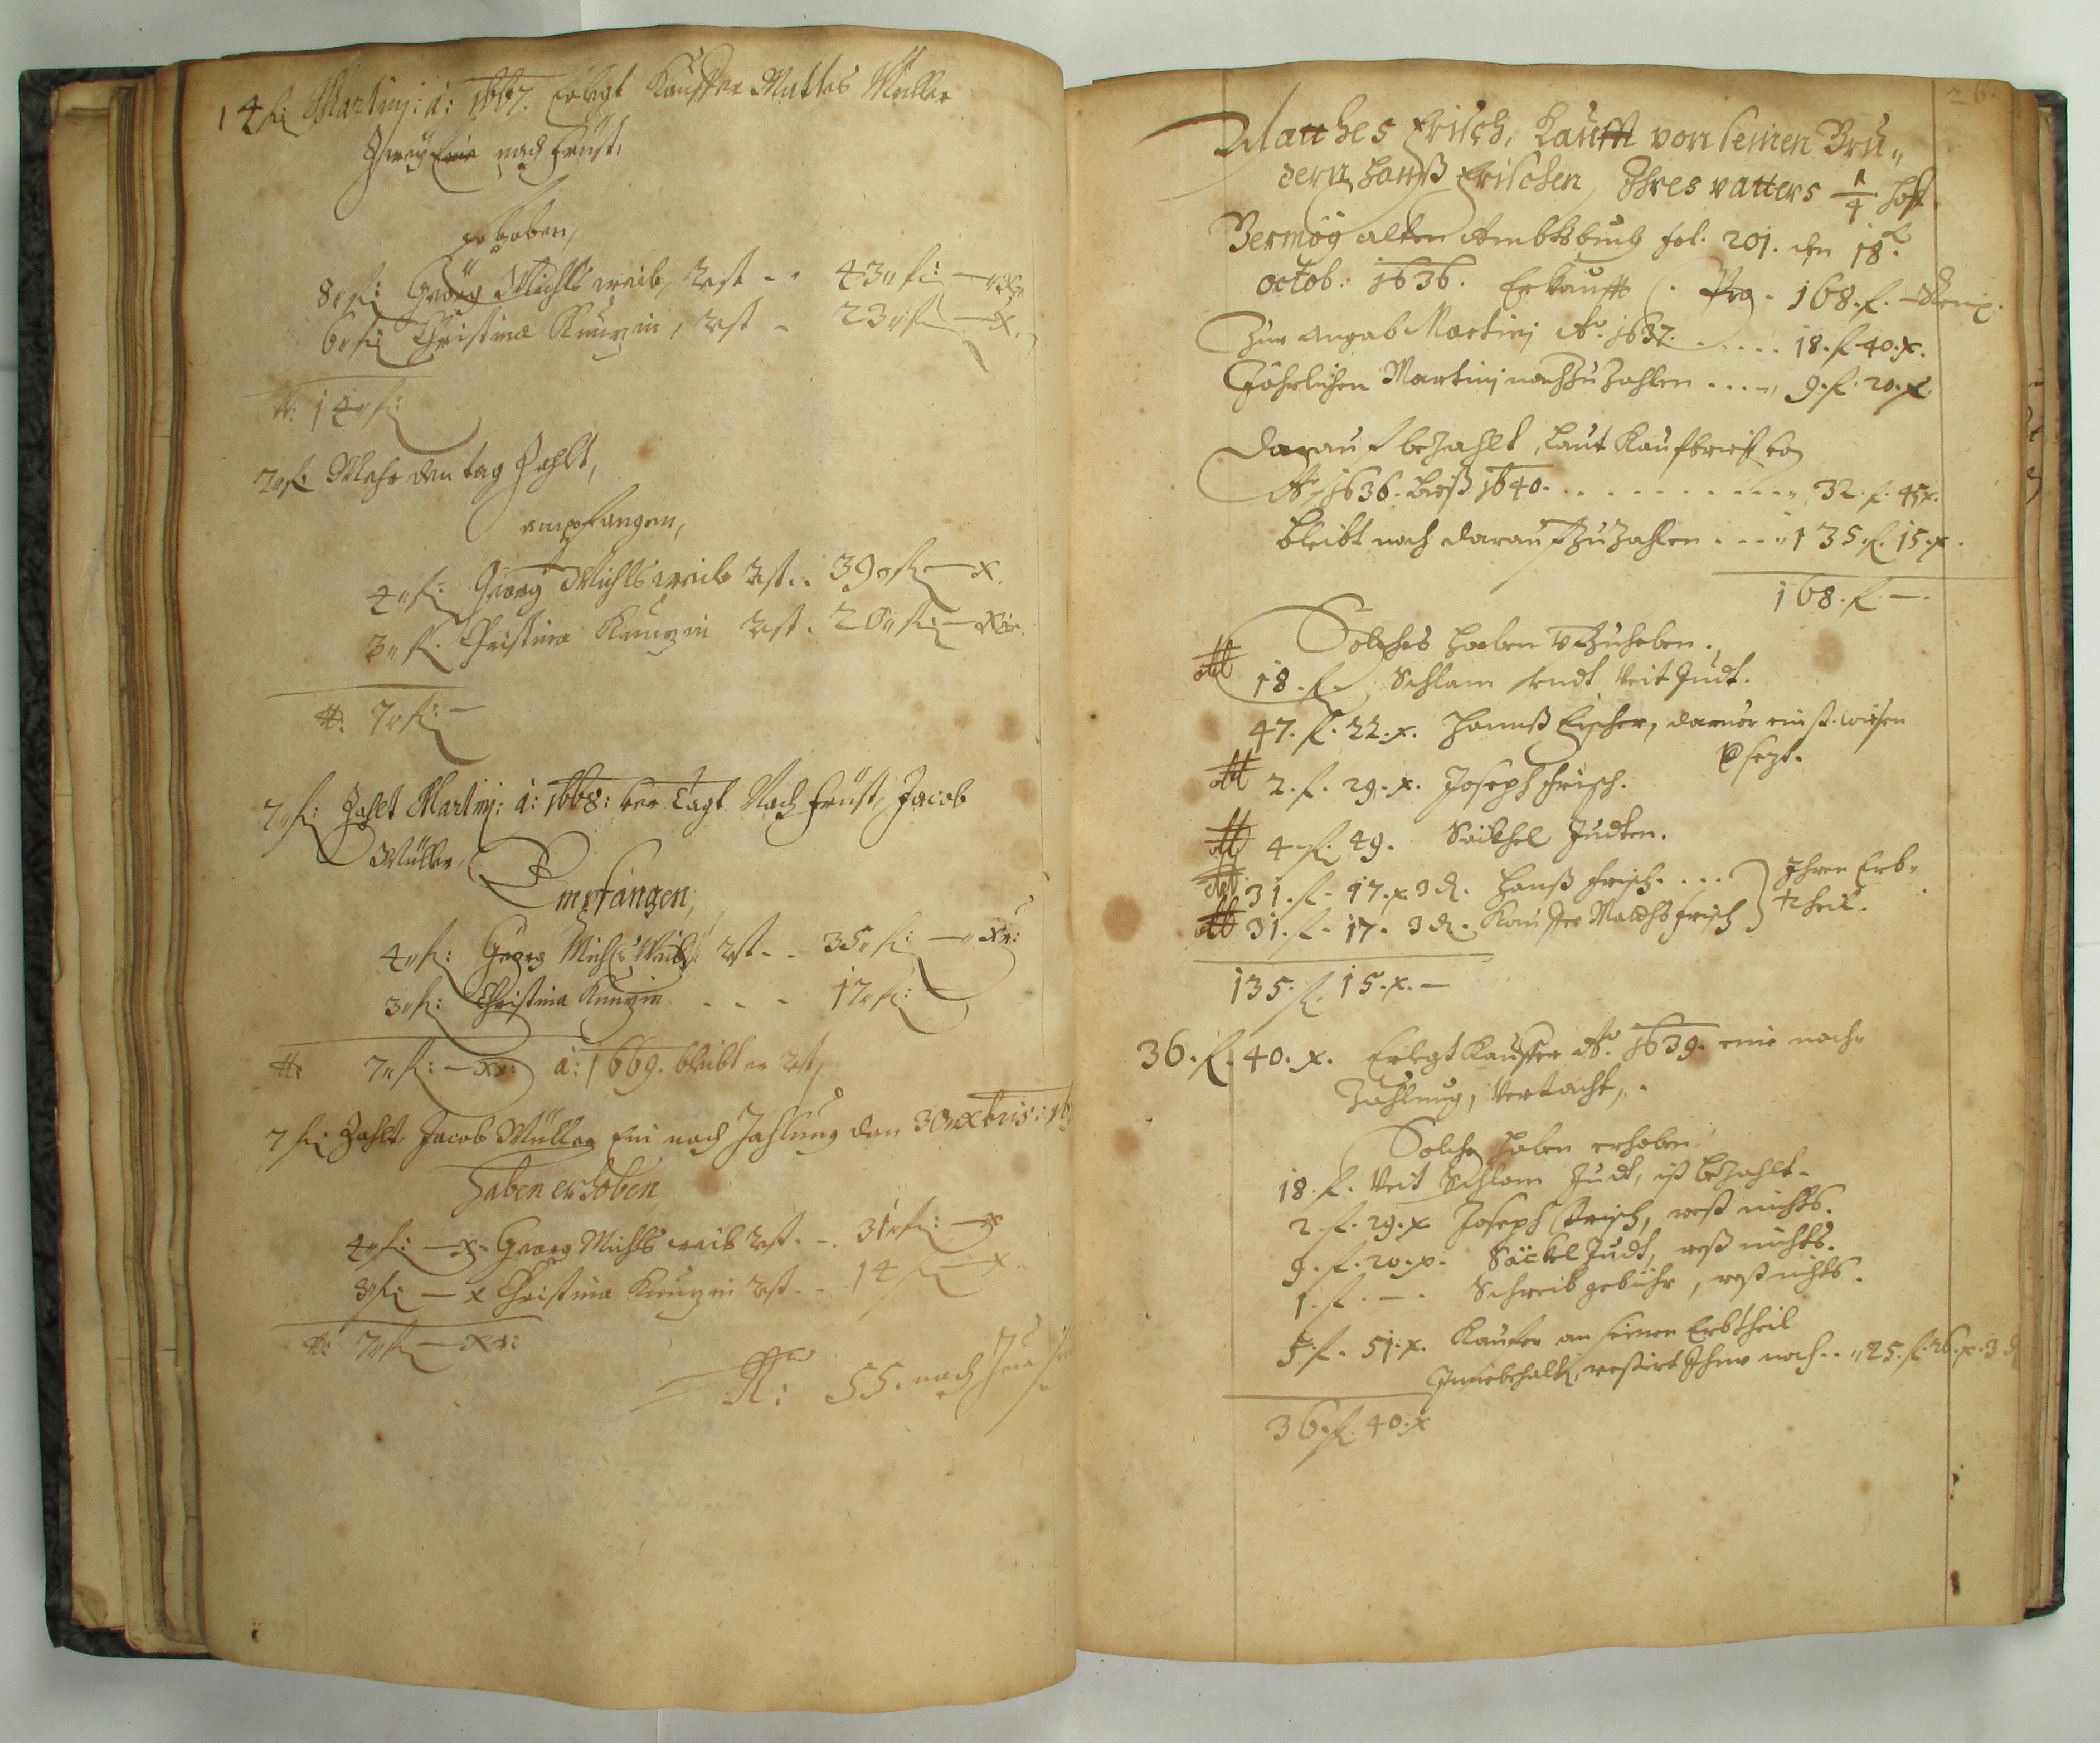 14 fl: Martinj: a: 1667. Erlegt Kauffer Mattes Müller
Zwey nach frist,
erhoben,
8 fl: Georg Michls weib, Rst - - 43 fl: — x
6 fl: Christina Kunzin, Rst - 23 fl — x.
tt: 14 fl:
7 fl. Mehr den tag Zahlt,
empfangen,
4 fl: Georg Michls weib Rst.. 39 fl — x.
3 fl. Christina Kunzin Rst. 20 fl: — xr.
tt: 7 fl: —
7 fl: Zahlt Martinj: a: 1668: Nach frist, Jacob
Müller,
Empfangen,
4 fl: Georg Michls Weib Rst - - 35 fl: — xr:
3 fl: Christina Kunzin - - - 17 fl: —
tt: 7 fl: — xr: a: 1669. bleibt er Rst,
7 fl: Zahlt, Jacob Müller Ein nach Zahlung den 30 xbris: 16
haben erhoben,
4 fl: — x. Georg Michls weib Rst. -. 31 fl: — x
3 fl: — x Christina Kunzin Rst - - 14 fl — x.
tt: 7 fl — xr:
55. nach
26.
Matthes Frisch, Kaufft von seinen Bru„
dern Hanß Frischen, Ihres vatters 1/4 hoff.
Vermög alten Ambtsbuch fol. 201. den 18.
octob: 1636. Erkaufft . Prg. 168. f. —
Zur angab Martinj Ao. 1637. . . . . . 18. f. 40. x.
Jährlichen Martinj nachzuzahlen . . . . 9. f. 20. x.
Darauf bezahlt, laut Kaufbrieff
Ao. 1636. biß 1640. . . . . . . . . . . . 32. f. 45 x.
bleibt noch darauf zuzahlen . . . . 135. f. 15. x.
168. f. —.
Solches haben zuheben.
18. f. Schlam Veit Judt.
47. f. 22. x. Hannß Fischer, darvor ein st. wiesen
Versezt.
2. f. 29. x. Joseph frisch.
4 f. 49. Säckhel Judten.
31. f. 17. x. 3 d. Hanß frisch . . . Ihren Erb„
31. f. 17. 3 d. Kauffer Matths frisch theil.
135. f. 15. x. —
36. f. 40. x. Erlegt Kauffer Ao. 1639. eine nach„
Zahlung,
Solche haben erhoben.
18. f. Veit Schlam Judt, ist bezahlt.
2 f. 29. x. Joseph frisch, rest nichts.
9. f. 20. x. Säckel Judt, rest nichts.
1. f. —. Schreib gebühr, rest nichts.
5 f. 51. x. Kaufer an seinen Erbtheil
Innebehalt, restirt Ihme noch .. 25. f. 26. x. 3 d
36. f. 40. x